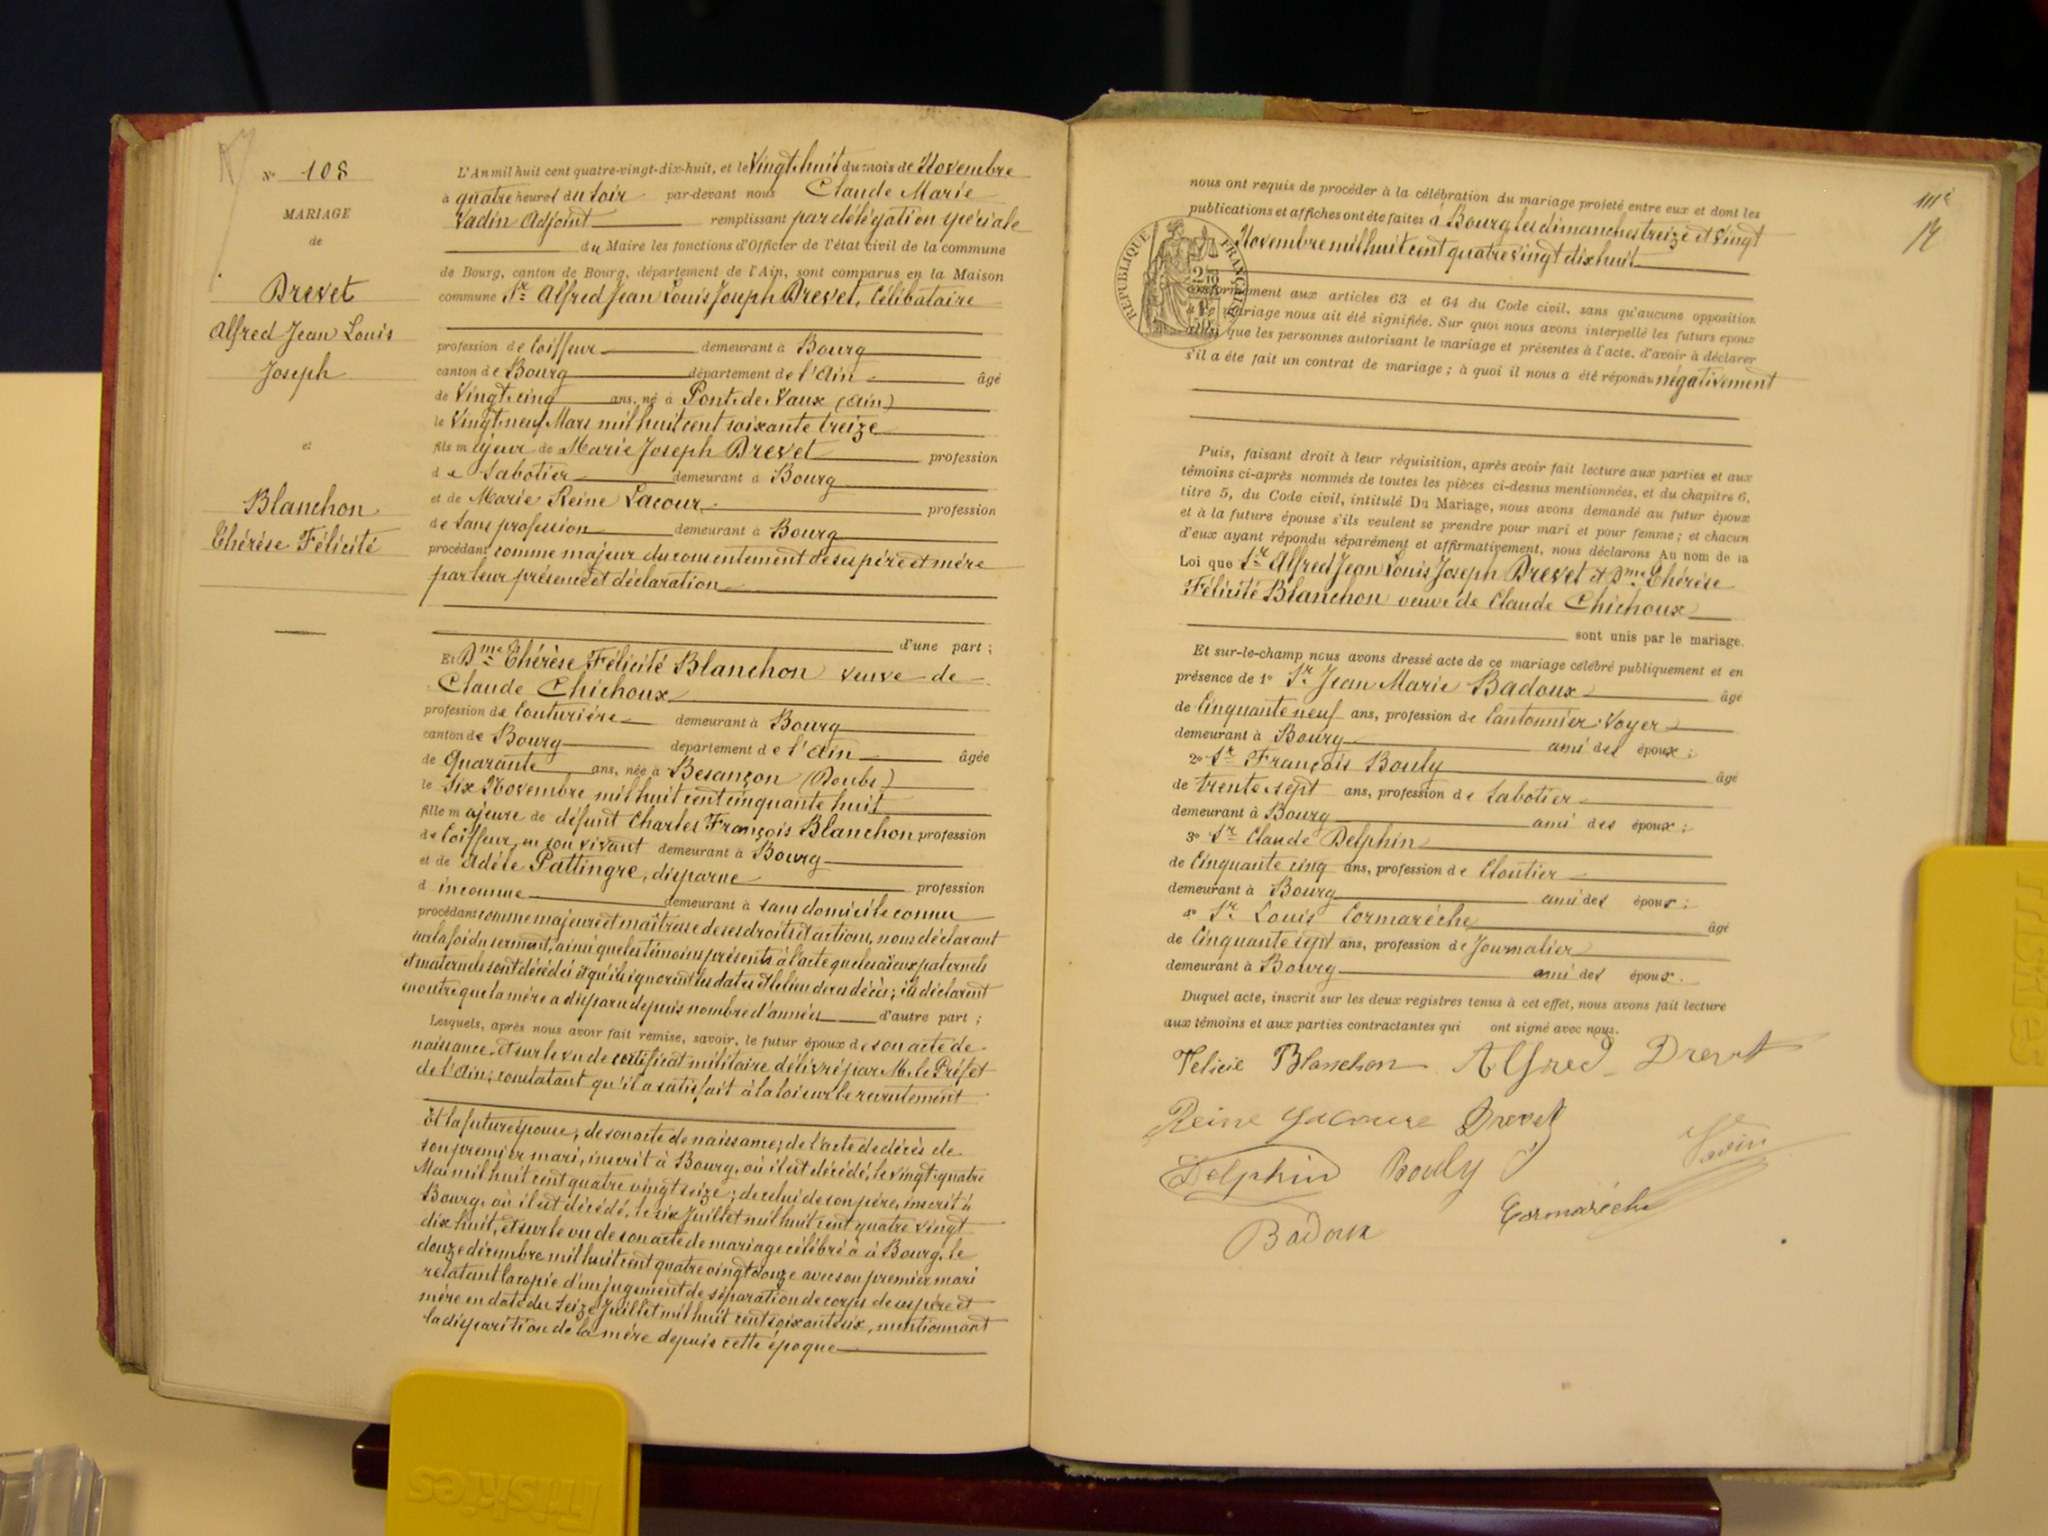 N° 108
MARIAGE
de
Drevet
Alfred Jean Louis
Joseph
et
Blanchon
Thérèse Félicité
L'An mil huit cent quatre-vingt-dix-huit, et le Vingt huit du mois de Novembre
à quatre heures du soir par-devant nous Claude Marie
Vadin Adjoint remplissant par délégation spéciale
du Maire les fonctions d'Officier de l'état civil de la commune
de Bourg, canton de Bourg, département de l'Ain, sont comparus en la Maison
commune Sr Alfred Jean Louis Joseph Drevet, Célibataire
profession de Coiffeur demeurant à Bourg
canton de Bourg département de l'Ain âgé
de Vingt cinq ans, né à Pont de Vaux (Ain)
le Vingt neuf Mars mil huit cent soixante treize
fils majeur de Marie Joseph Drevet profession
de Sabotier demeurant à Bourg
et de Marie Reine Lacour profession
de sans profession demeurant à Bourg
procédant comme majeur du consentement de ses père et mère
par leur présence et déclaration
d'une part ;
Et Dme Thérèse Félicité Blanchon veuve de
Claude Chichoux
profession de Couturière demeurant à Bourg
canton de Bourg département de l'Ain âgée
de Quarante ans, née à Besançon (Doubs)
le Six Novembre mil huit cent cinquante huit
fille majeure de défunt Charles François Blanchon profession
de Coiffeur en son vivant demeurant à Bourg
et de Adèle Pattingre, disparue profession
d inconnue demeurant à sans domicile connu
procédant comme majeure et maîtresse de ses droits et actions, nous déclarant
sur la foi du serment, ainsi que les témoins présents à l'acte que les aïeux paternels
et maternels sont décédés et qu'ils ignorent les dates et lieu de ces décès ; ils déclarent
en outre que la mère a disparu depuis nombre d'années d'autre part ;
Lesquels, après nous avoir fait remise, savoir, le futur époux de son acte de
naissance, et sur le vu de certificat militaire délivré par M. le Préfet
de l'Ain, constatant qu'il a satisfait à la loi sur le recrutement
Et la future épouse, de son acte de naissance, de l'acte de décès de
son premier mari, inscrit à Bourg, où il est décédé, le vingt quatre
Mai mil huit cent quatre vingt seize ; de celui de son père, inscrit à
Bourg, où il est décédé, le six Juillet mil huit cent quatre vingt
dix huit, et sur le vu de son acte de mariage célébré à Bourg, le
douze décembre mil huit cent quatre vingt onze avec son premier mari
relatant la copie d'un jugement de séparation de corps de ses père et
mère en date du Seize Juillet mil huit cent soixante six, mentionnant
la disparition de la mère depuis cette époque
nous ont requis de procéder à la célébration du mariage projeté entre eux et dont les
publications et affiches ont été faites à Bourg les dimanches treize et Vingt
Novembre mil huit cent quatre vingt dix huit
RÉPUBLIQUE FRANÇAISE
conformément aux articles 63 et 64 du Code civil, sans qu'aucune opposition
à ce mariage nous ait été signifiée. Sur quoi nous avons interpellé les futurs époux
ainsi que les personnes autorisant le mariage et présentes à l'acte, d'avoir à déclarer
s'il a été fait un contrat de mariage ; à quoi il nous a été répondu négativement
Puis, faisant droit à leur réquisition, après avoir fait lecture aux parties et aux
témoins ci-après nommés de toutes les pièces ci-dessus mentionnées, et du chapitre 6,
titre 5, du Code civil, intitulé Du Mariage, nous avons demandé au futur époux
et à la future épouse s'ils veulent se prendre pour mari et pour femme ; et chacun
d'eux ayant répondu séparément et affirmativement, nous déclarons Au nom de la
Loi que Sr Alfred Jean Louis Joseph Drevet et Dme Thérèse
Félicité Blanchon veuve de Claude Chichoux
sont unis par le mariage.
Et sur-le-champ nous avons dressé acte de ce mariage célébré publiquement et en
présence de 1° Sr Jean Marie Badoux âgé
de Cinquante neuf ans, profession de Cantonnier Voyer
demeurant à Bourg ami des époux ;
2° Sr François Bouly âgé
de trente sept ans, profession de Sabotier
demeurant à Bourg ami des époux ;
3° Sr Claude Delphin
de Cinquante cinq ans, profession de Cloutier
demeurant à Bourg ami des époux ;
4° Sr Louis Cormarèche âgé
de Cinquante sept ans, profession de Journalier
demeurant à Bourg ami des époux.
Duquel acte, inscrit sur les deux registres tenus à cet effet, nous avons fait lecture
aux témoins et aux parties contractantes qui ont signé avec nous.
Félicie Blanchon Alfred Drevet
Reine Lacoure Drevet
Delphin Bouly Vadin
Cormarèche
Badoux
Friskies
Friskies